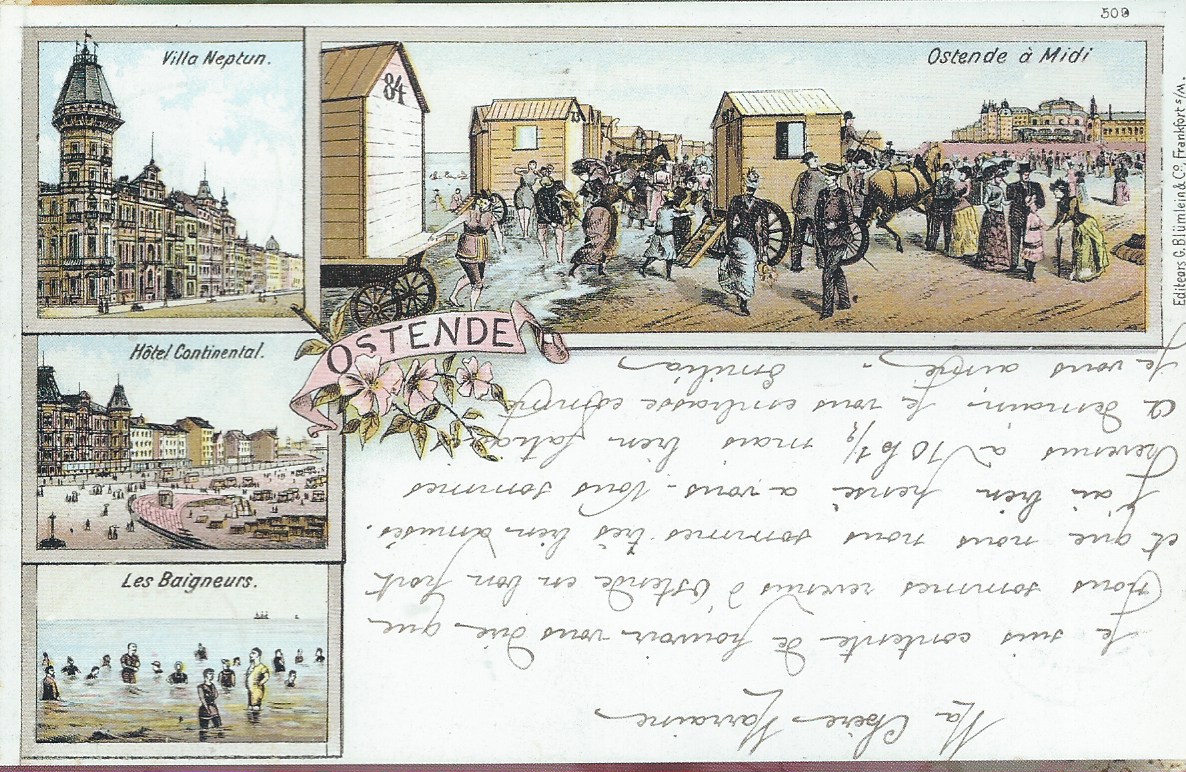 509
Villa Neptun.
Ostende à Midi
84
Editeurs G. Blümlein & Co. Frankfort s/M.
OSTENDE
Hôtel Continental.
Les Baigneurs.
Ma Chère Marraine
Je suis contente de pouvoir vous dire que
nous sommes revenus d'Ostende en bon port
et que nous nous sommes très bien amusés.
J'ai bien pensé à vous - Nous sommes
revenus à 10 h 1/2 mais bien fatigués
A demain. Je vous embrasse comme
je vous aime - Emilia